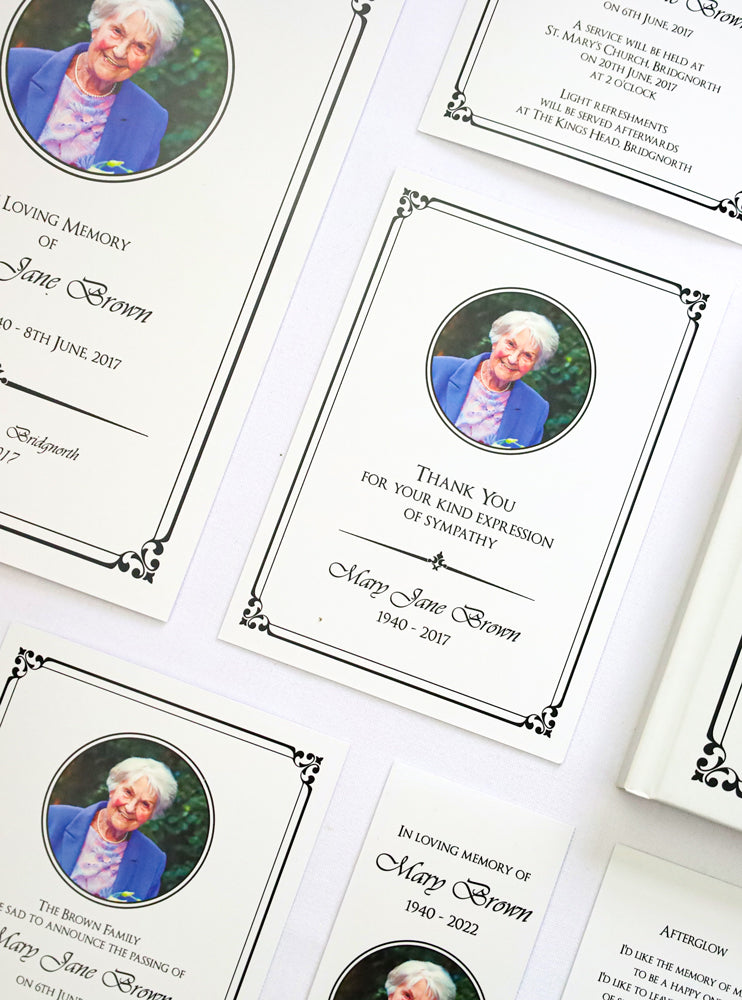 Loving Memory
of
Jane Brown
- 8th June, 2017
Bridgnorth
Brown
on 6th June, 2017
A service will be held at
St. Mary's Church, Bridgnorth
on 20th June, 2017
at 2 o'clock
Light refreshments
will be served afterwards
at The Kings Head, Bridgnorth
Thank You
for your kind expression
of sympathy
Mary Jane Brown
1940 - 2017
The Brown Family
sad to announce the passing of
Mary Jane Brown
on 6th June
In loving memory of
Mary Brown
1940 - 2022
Afterglow
I'd like the memory of
to be a happy
I'd like to